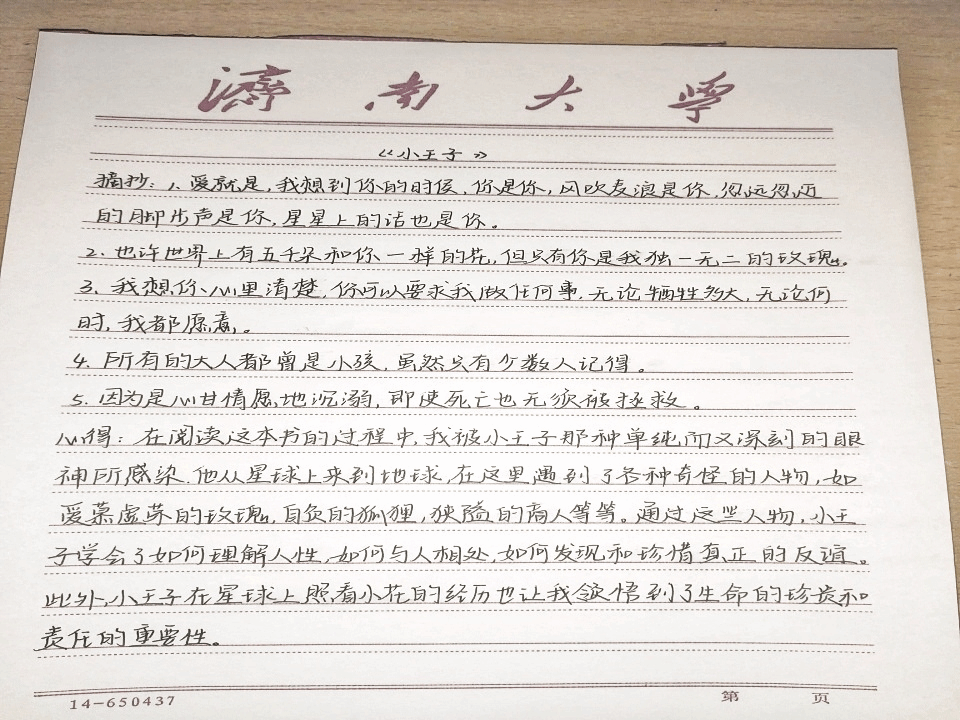 濟南大學
《小王子》
摘抄：1、爱就是，我想到你的时候，你是你，风吹麦浪是你，忽远忽近
的脚步声是你，星星上的话也是你。
2. 也许世界上有五千朵和你一样的花，但只有你是我独一无二的玫瑰。
3. 我想你心里清楚，你可以要求我做任何事，无论牺牲多大，无论何
时，我都愿意。
4. 所有的大人都曾是小孩，虽然只有少数人记得。
5. 因为是心甘情愿地沉溺，即使死亡也无须被拯救。
心得：在阅读这本书的过程中，我被小王子那种单纯而又深刻的眼
神所感染。他从星球上来到地球，在这里遇到了各种奇怪的人物，如
爱慕虚荣的玫瑰，自负的狐狸，狭隘的商人等等。通过这些人物，小王
子学会了如何理解人性，如何与人相处，如何发现和珍惜真正的友谊。
此外，小王子在星球上照看小花的经历也让我领悟到了生命的珍贵和
责任的重要性。
14-650437
第 页